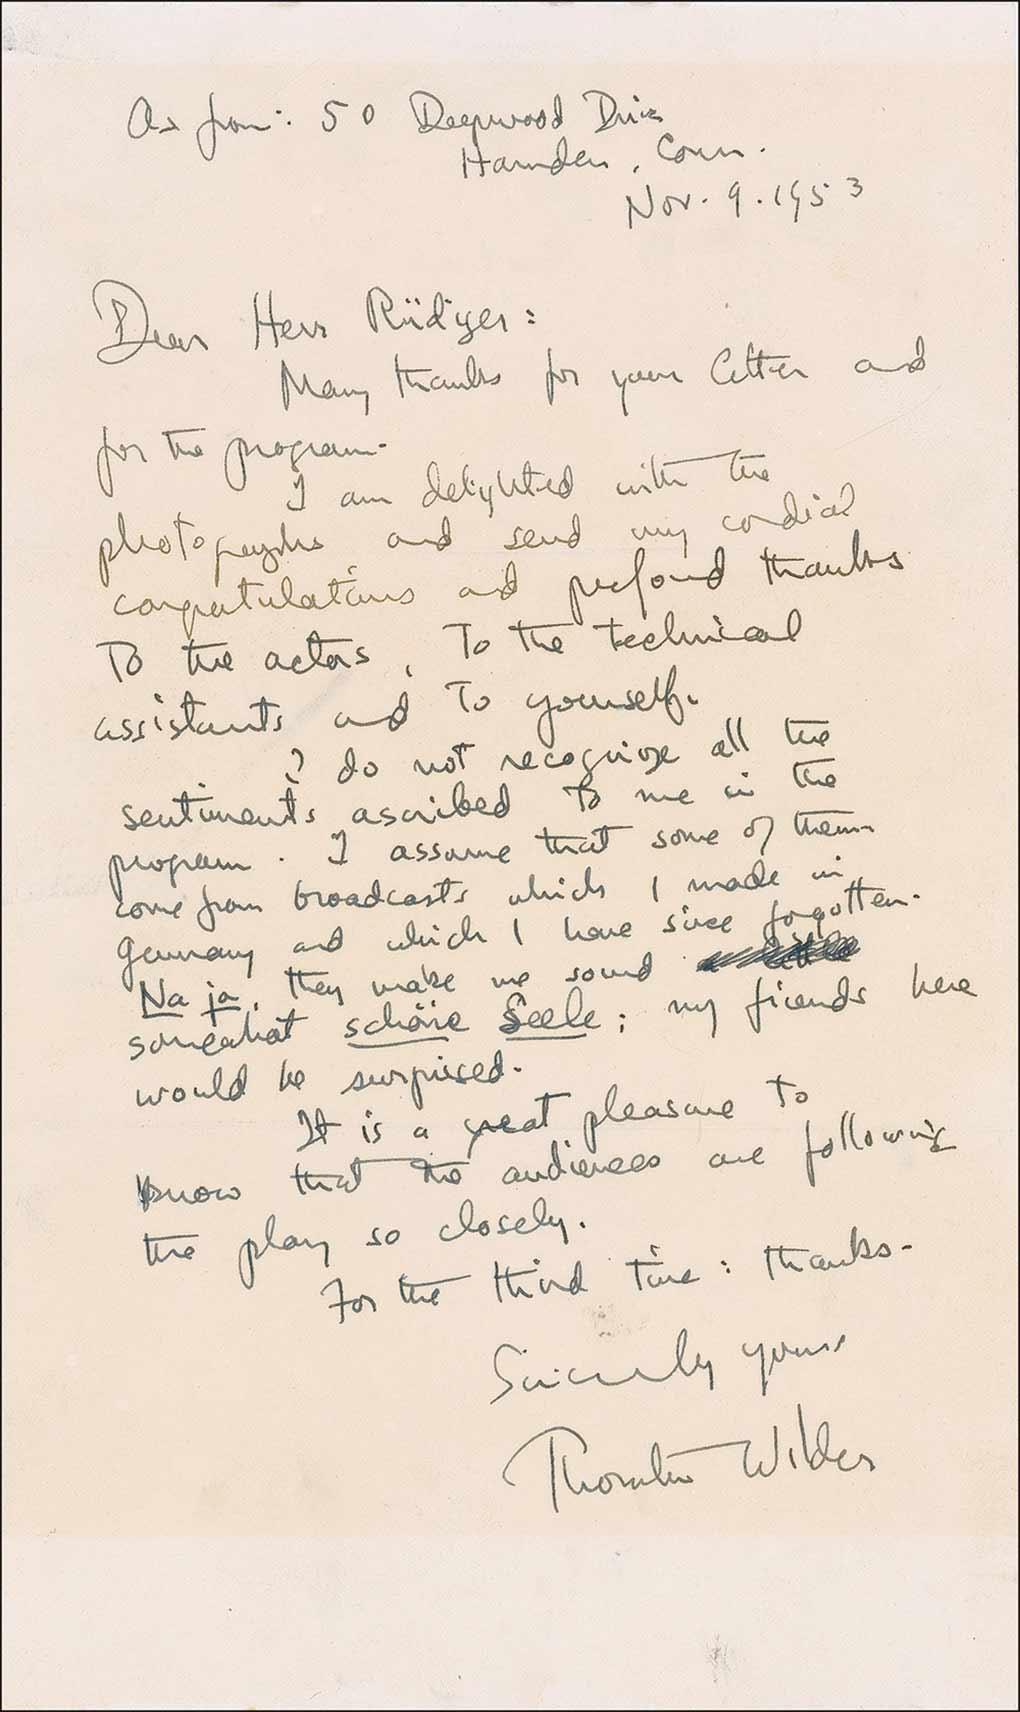 As from: 50 Deepwood Drive
Hamden, Conn.
Nov. 9. 1953
Dear Herr Rüdiger:
Many thanks for your letter and
for the program.
I am delighted with the
photographs and send my cordial
congratulations and profound thanks
To the actors, To the technical
assistants and To yourself.
I do not recognize all the
sentiments ascribed To me in the
program. I assume that some of them
come from broadcasts which I made in
Germany and which I have since forgotten.
Na ja, they make me sound
somewhat schöne Seele; my friends here
would be surprised.
It is a great pleasure to
know that the audiences are following
the play so closely.
For the third time: thanks.
Sincerely yours
Thornton Wilder